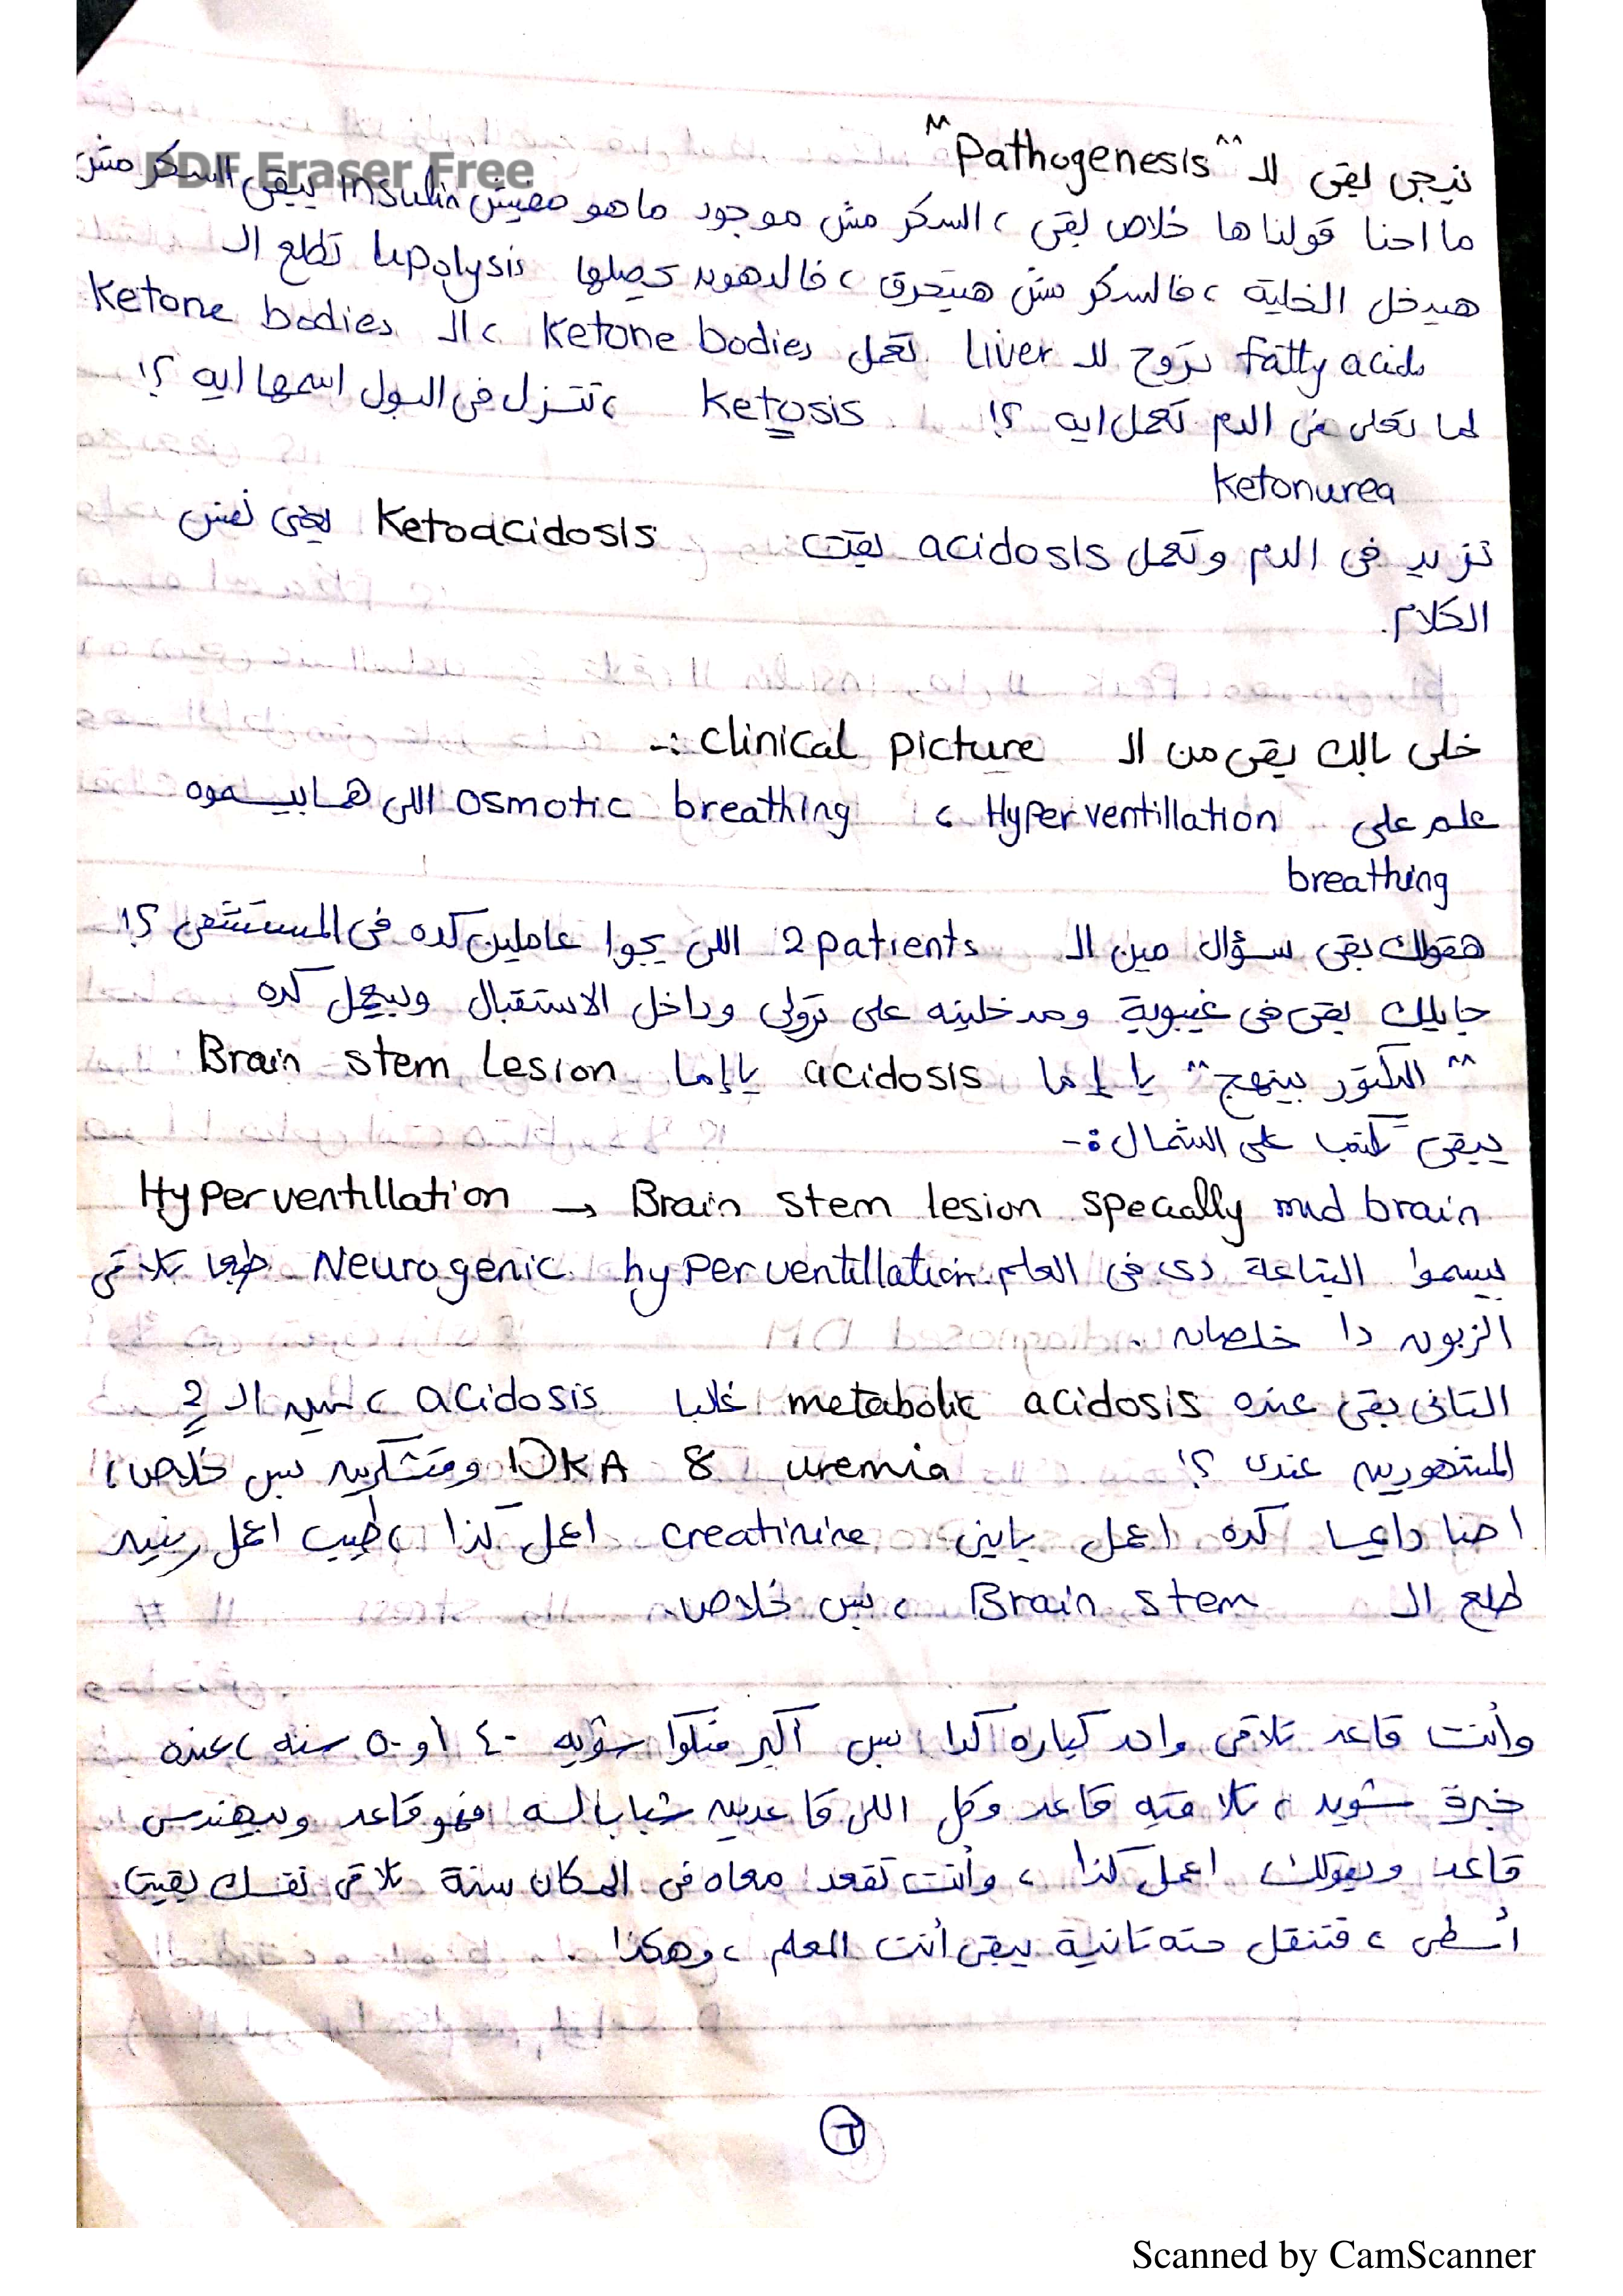 نيجى بقى للـ "Pathogenesis"
PDF Eraser Free
ما احنا قولناها خلاص بقى ، السكر مش موجود ماهو مفيش insulin يبقى السكر مش
هيدخل الخلية ، فالسكر مش هيتحرق ، فالدهون يحصلها lipolysis تطلع الـ
fatty acids تروح للـ Liver تعمل Ketone bodies ، الـ Ketone bodies
لما تعلى فى الدم تعمل ايه ؟! Ketosis ، تتنزل فى البول اسمها ايه ؟!
Ketonurea
تزيد فى الدم وتعمل acidosis بقيت Ketoacidosis يعنى نفس
الكلام.
خلى بالك بقى من الـ clinical picture :-
علم على Hyperventillation ، osmotic breathing اللى هما بيسموه
breathing
هقولك بقى سؤال مين الـ 2 patients اللى يجوا عاملين كده فى المستشفى ؟!
جايلك بقى فى غيبوبة ومدخلينه على ترولى وداخل الاستقبال وبيعمل كده
"الدكتور بينهج" يا إما acidosis يا إما Brain stem Lesion
يبقى تكتب على الشمال :-
Hyperventillation → Brain stem lesion specially mid brain
بيسموا البتاعة دى فى العلم Neurogenic hyperventillation طبعا تلاقى
الزبون دا خلصان .
التانى بقى عنده metabolic acidosis غالبا acidosis ، مين الـ 2
المشهورين عندى ؟! uremia & DKA ومتشكرين بس خلاص ،
احنا دايما كده اعمل ياينى creatinine اعمل كذا ، طيب اعمل رنين
طلع الـ Brain stem ، بس خلاص.
وأنت قاعد تلاقى واحد كباره كدا بس أكبر منكوا شويه ٤٠ او ٥٠ سنه ، عنده
خبرة شويه ، تلاقيه قاعد وكل اللى قاعدين شباب لسه فهو قاعد وبيهندس
قاعد وبيقولك اعمل كذا ، وأنت تقعد معاه فى المكان سنة تلاقى نفسك بقيت
أسطى ، فتنقل حته تانية يبقى أنت المعلم ، وهكذا .
٦
Scanned by CamScanner